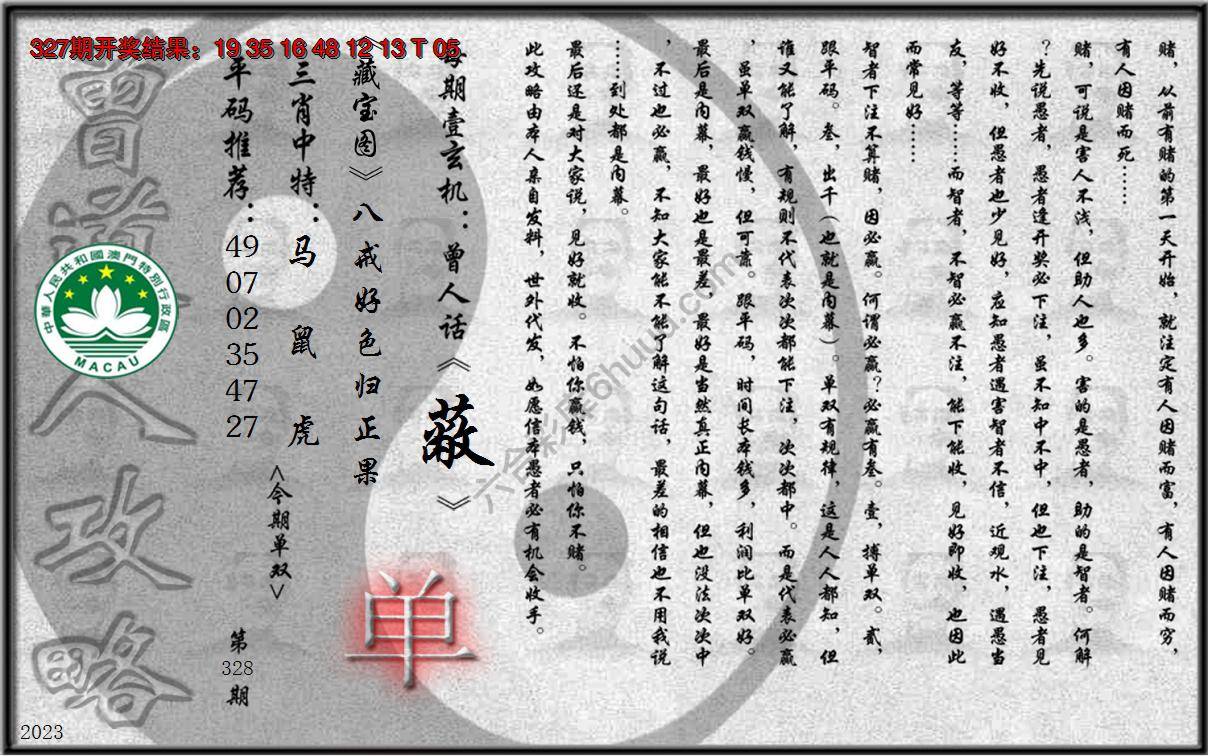 327期开奖结果：19 35 16 48 12 13 T 05
赌，从前有赌的第一天开始，就注定有人因赌而富，有人因赌而穷，
有人因赌而死……
赌，可说是害人不浅，但助人也多。害的是愚者，助的是智者。何解
？先说愚者，愚者逢开奖必下注，虽不知中不中，但也下注，愚者见
好不收，但愚者也少见好，应知愚者遇害智者不信，近观水，遇愚当
友，等等……而智者，不智必赢不注，能下能收，见好即收，也因此
而常见好……
智者下注不算赌，因必赢。何谓必赢？必赢有叁。壹，搏单双。贰，
跟平码。叁，出千（也就是内幕）。单双有规律，这是人人都知，但
谁又能了解，有规则不代表次次都能下注，次次都中。而是代表必赢
，虽单双赢钱慢，但可靠。跟平码，时间长本钱多，利润比单双好。
最后是内幕，最好也是最差，最好是当然真正内幕，但也没法次次中
，不过也必赢，不知大家能不能了解这句话，最差的相信也不用我说
……到处都是内幕。
最后还是对大家说，见好就收。不怕你赢钱，只怕你不赌。
此攻略由本人亲自发料，世外代发，如愿信本愚者必有机会收手。
每期壹玄机：曾人话《蔽》
《藏宝图》八戒好色归正果
三肖中特：马 鼠 虎
<今期单双>
单
平码推荐：49 07 02 35 47 27
第328期
曾道人攻略
中華人民共和國澳門特別行政區
MACAU
六合彩果6huuu.com
2023